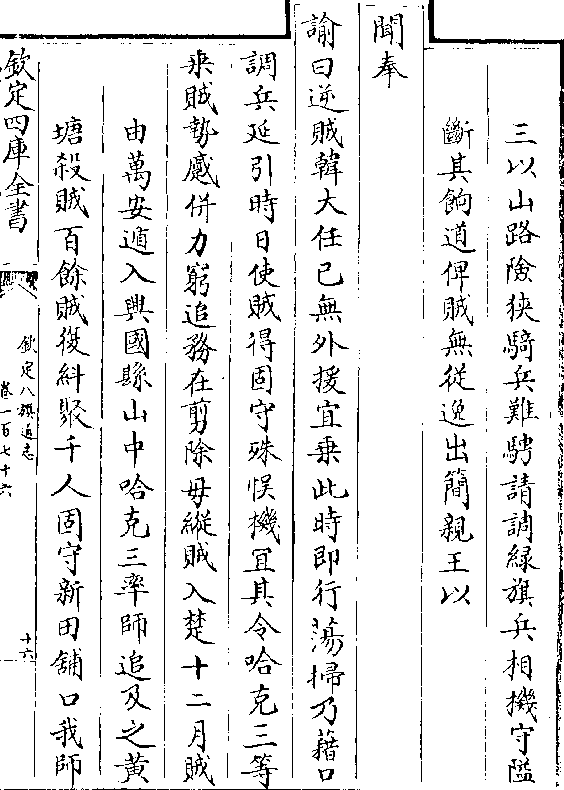 三以山路險狹騎兵難騁請調緑旗兵相機守隘
斷其餉道俾賊無從逸出簡親王以
聞奉
諭曰逆賊韓大任已無外援宜乗此時即行蕩掃乃藉口
調兵延引時日使賊得固守殊悞機宜其令哈克三等
乗賊勢蹙併力窮追務在剪除毋縱賊入楚十二月賊
由萬安遁入興國縣山中哈克三率師追及之黄
塘殺賊百餘賊復糾聚千人固守新田舖口我師
欽定四庫全書
欽定八旗通志
卷一百七十六
十六